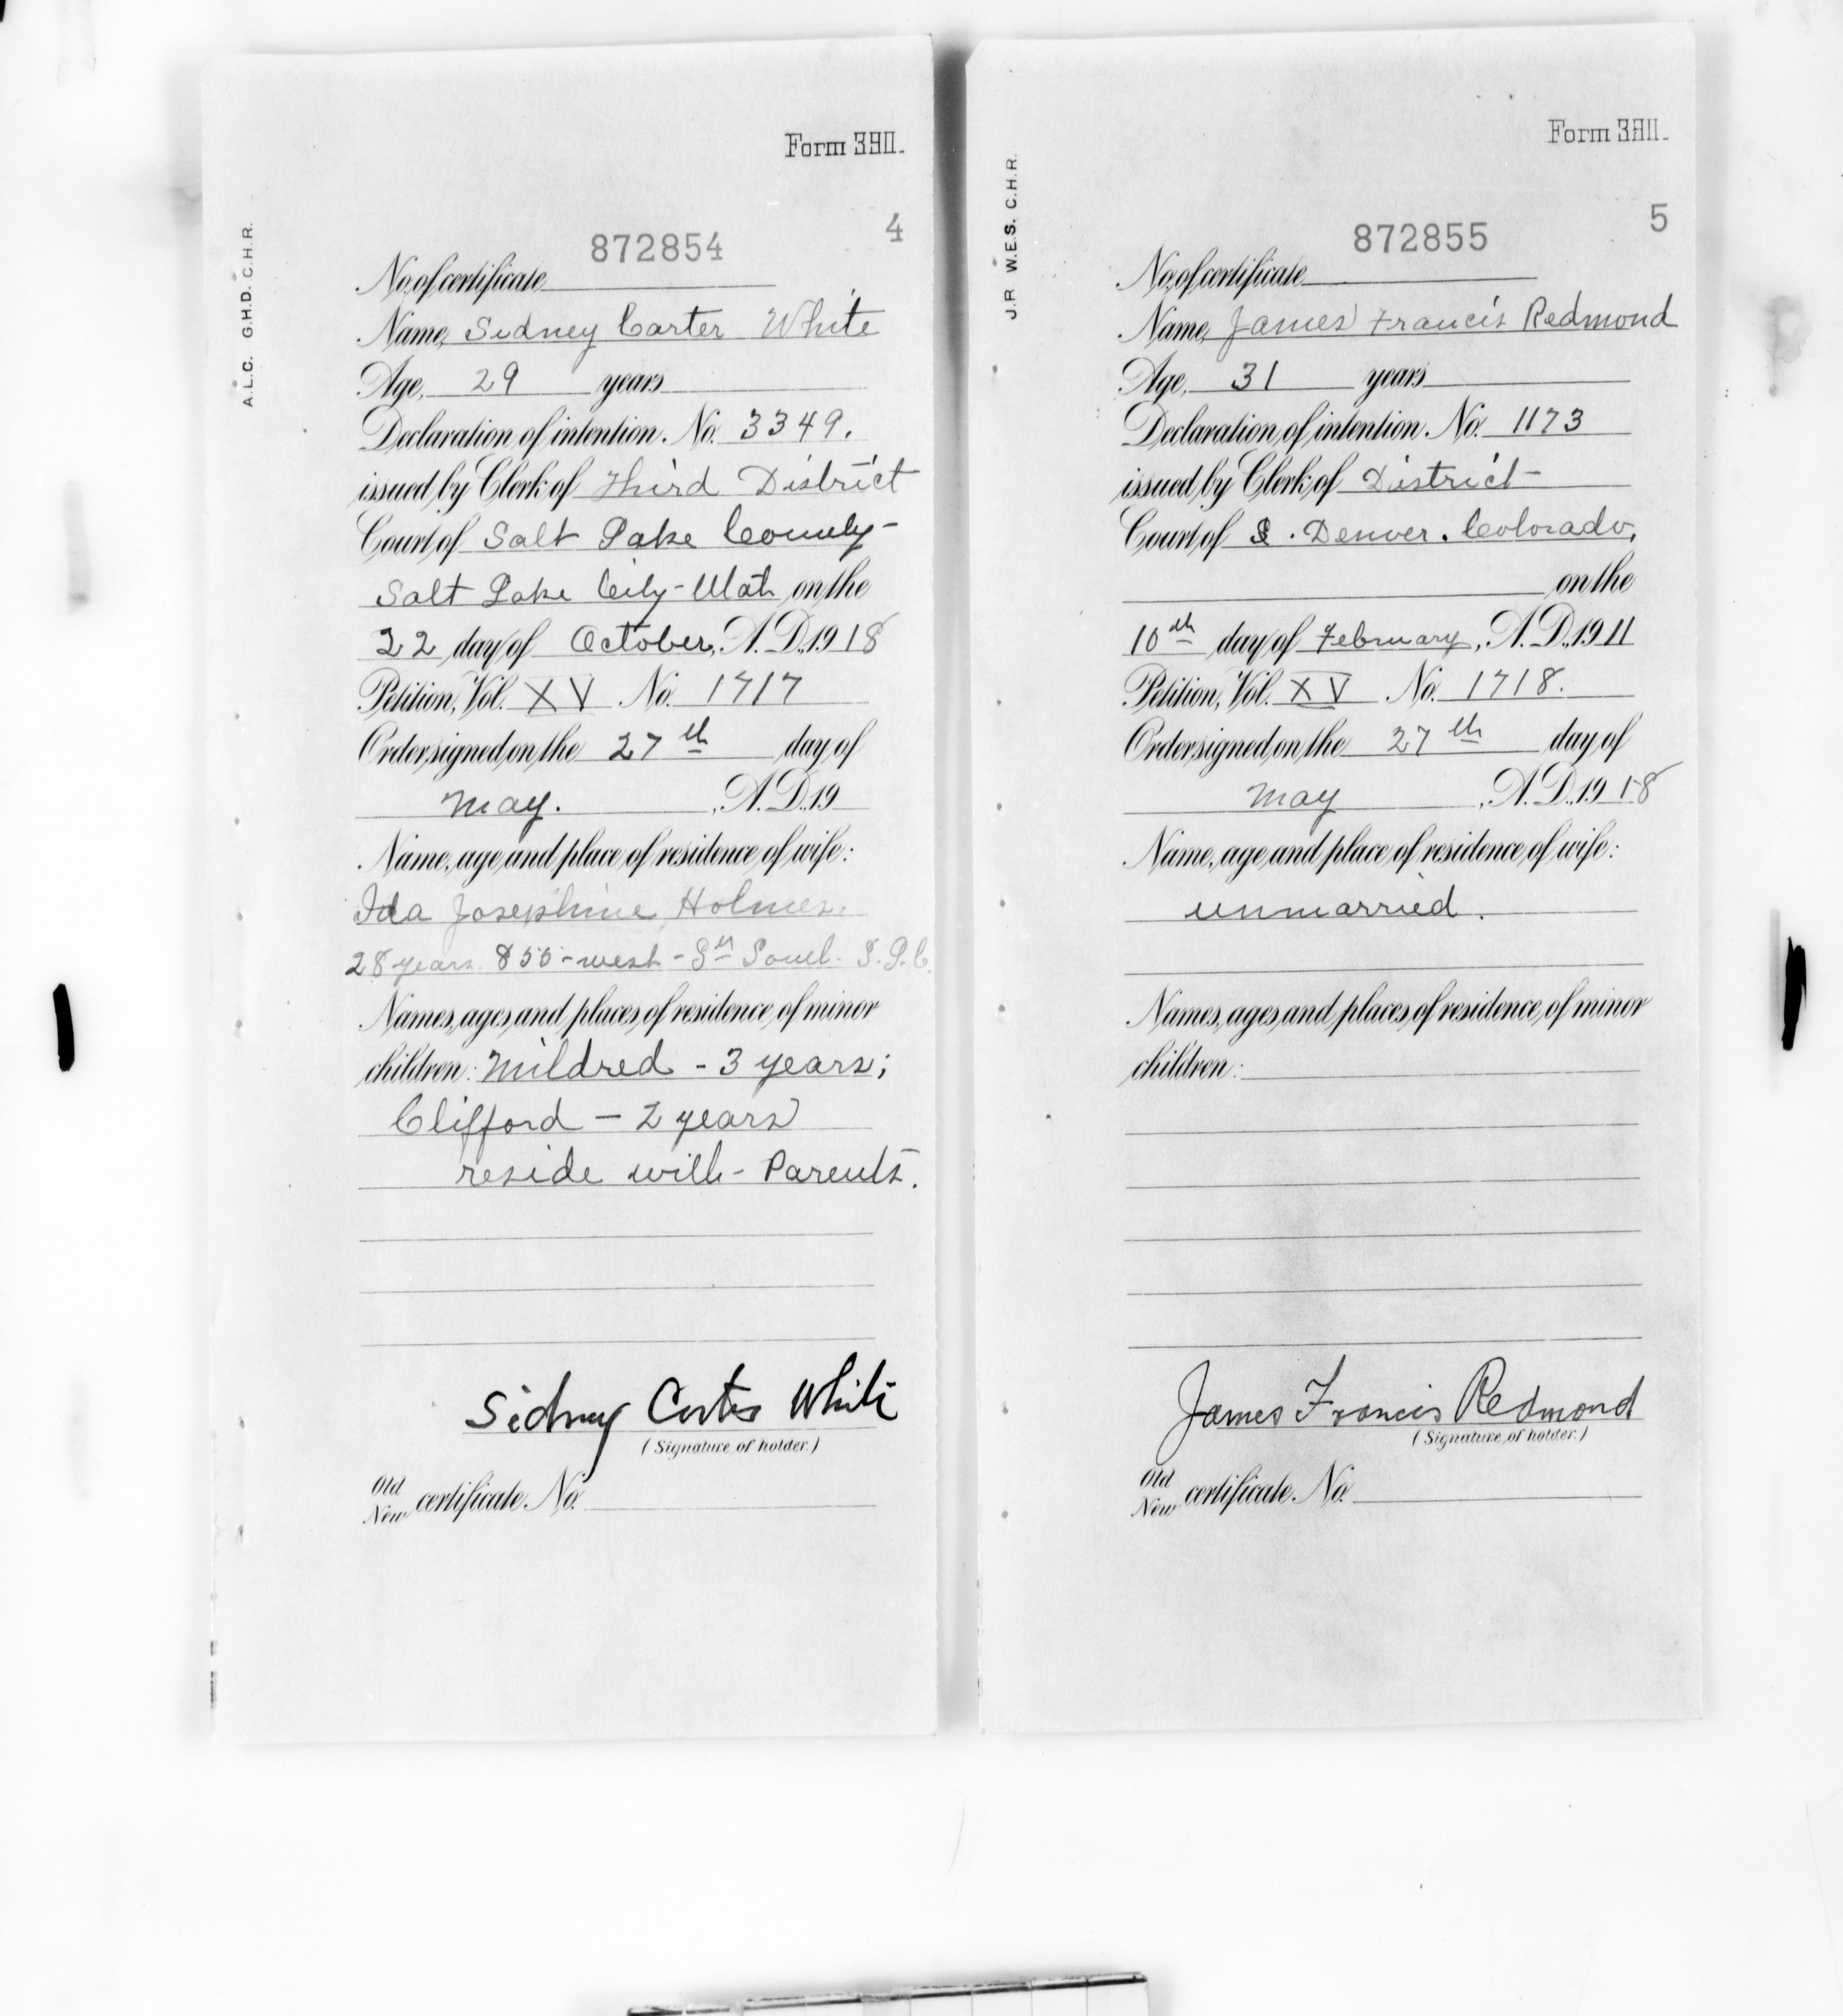 Form 390.
4
A.L.C. G.H.D. C.H.R.
872854
No. of certificate
Name, Sidney Carter White
Age, 29 years
Declaration of intention. No. 3349.
issued by Clerk of Third District
Court of Salt Lake County-
Salt Lake City-Utah on the
22 day of October, A.D. 1918
Petition, Vol. XV No. 1717
Order signed on the 27th day of
May. , A.D. 19
Name, age and place of residence of wife:
Ida Josephine Holmes.
28 years. 850-west - South. S.L.C.
Names, ages and places of residence of minor
children: Mildred - 3 years;
Clifford - 2 years
reside with - Parents.
Sidney Carter White
(Signature of holder.)
Old
New certificate No.
Form 390.
5
J.R. W.E.S. C.H.R.
872855
No. of certificate
Name, James Francis Redmond
Age, 31 years
Declaration of intention. No. 1173
issued by Clerk of District
Court of Denver. Colorado,
on the
10th day of February, A.D. 1911
Petition, Vol. XV No. 1718.
Order signed on the 27th day of
May , A.D. 1918
Name, age and place of residence of wife:
unmarried.
Names, ages and places of residence of minor
children:
James Francis Redmond
(Signature of holder.)
Old
New certificate No.